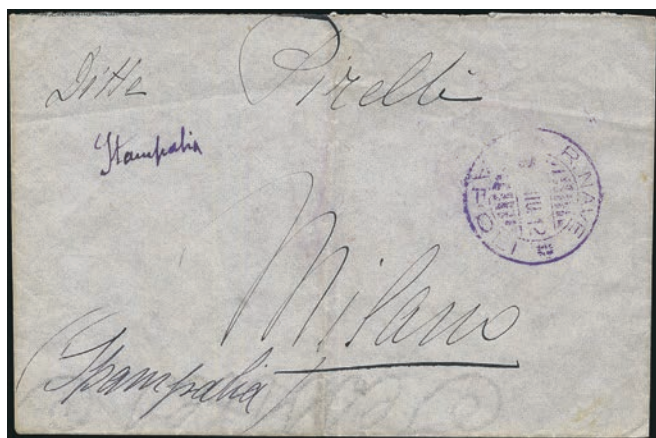 Ditta Pirelli
Stampalia
R. NAVE
Milano
Stampalia